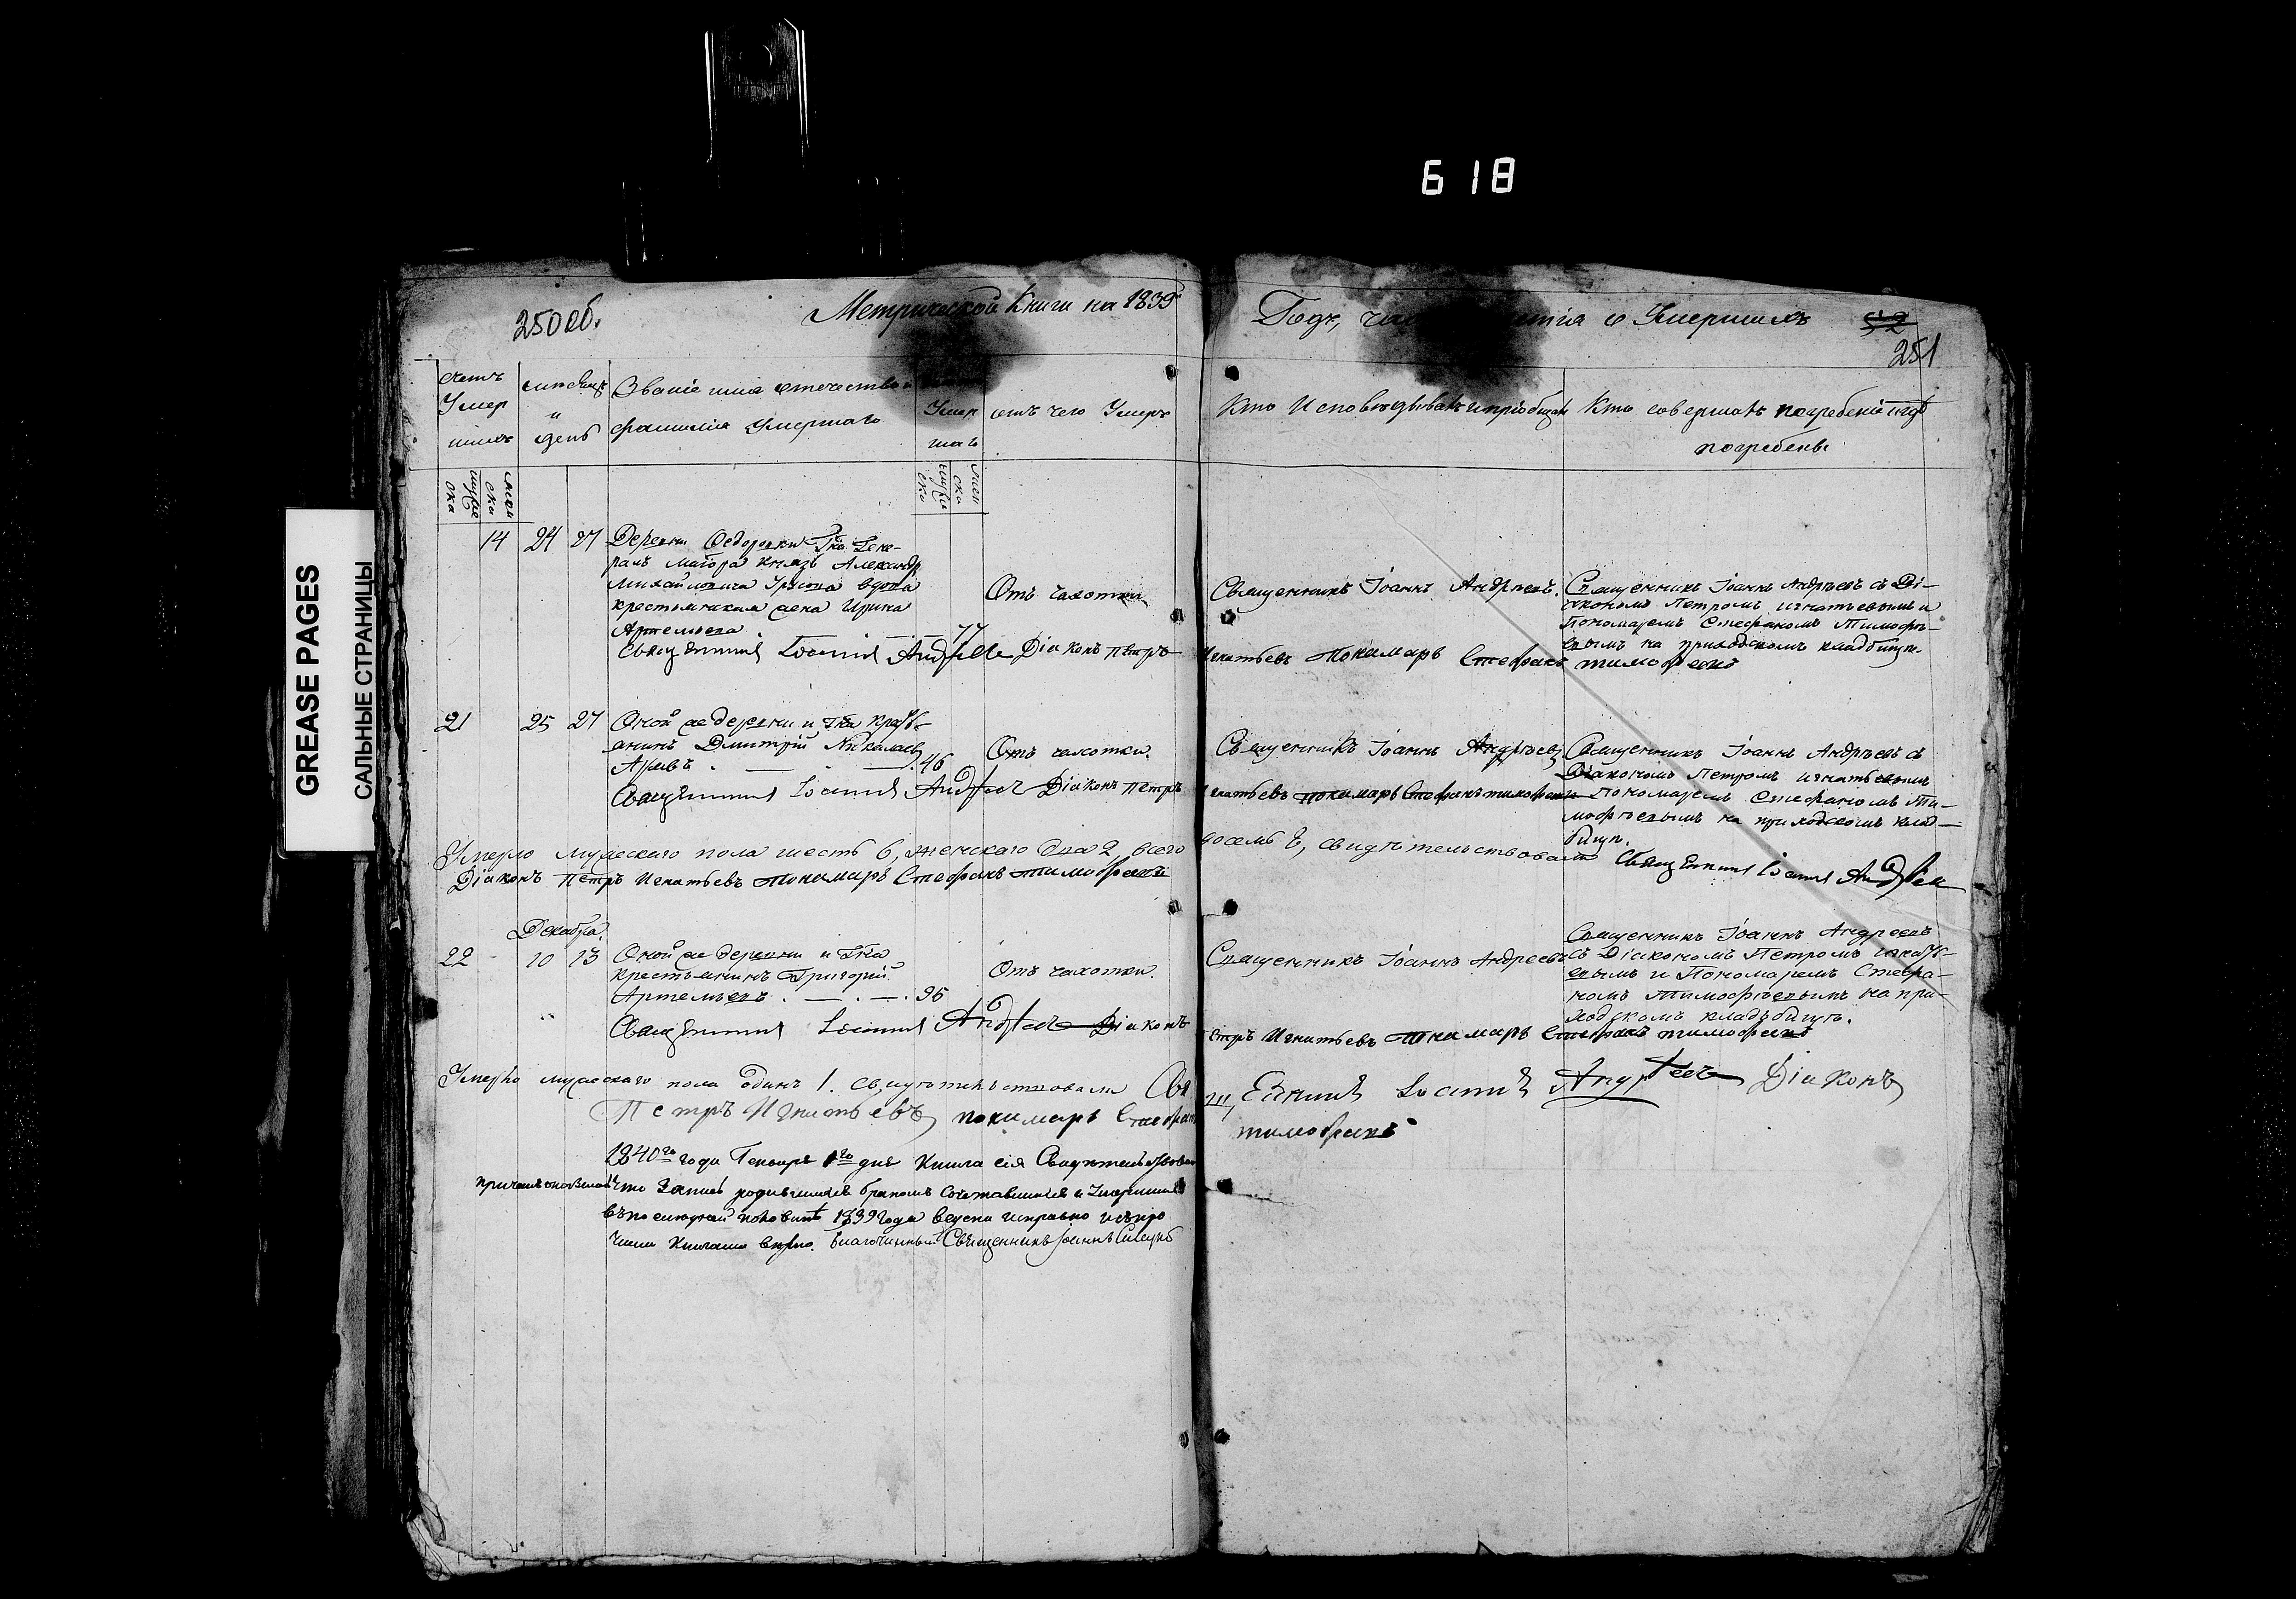 618
GREASE PAGES
САЛЬНЫЕ СТРАНИЦЫ
250 об.
Метрической Книги на 1839
Годъ, о Умершихъ
251
счетъ Умершихъ
мѣсяцъ и день
Званіе имя отечество и фамилія умершаго
Умершаго
отъ чего Умеръ
Кто Исповѣдывалъ и пріобщалъ
Кто совершалъ погребеніе и гдѣ погребены
14 24 27 Деревни Федоровки Гна Гене-
ралъ Маіора Князь Александр
Михайловича Урусова вдова
крестьянская жена Ирина
Артемьева 77
Отъ чахотки
Священникъ Іоаннъ Андреевъ.
Священникъ Іоаннъ Андреевъ съ Ді-
акономъ Петромъ Игнатьевымъ и
Пономаремъ Стефаномъ Тимофѣ-
евымъ на приходскомъ кладбищѣ.
Священникъ Іоаннъ Андреевъ Діаконъ Петръ Игнатьевъ Пономарь Стефанъ Тимофеевъ
21 25 27 Оной же деревни и Гна кресть-
янинъ Дмитрій Николаевъ
46
Отъ чахотки.
Священникъ Іоаннъ Андреевъ
Священникъ Іоаннъ Андреевъ съ
Діакономъ Петромъ Игнатьевымъ
Пономаремъ Стефаномъ Ти-
мофѣевымъ на приходскомъ клад-
бищѣ.
Священникъ Іоаннъ Андреевъ Діаконъ Петръ Игнатьевъ пономарь Стефанъ тимофеевъ
Умерло мужескаго пола шесть 6, женскаго два 2, всего восемь 8, свидѣтельствовали Священникъ Іоаннъ Андреевъ
Діаконъ Петръ Игнатьевъ Пономарь Стефанъ Тимофеевъ
Декабря.
22 10 13 Оной же деревни и Гна
крестьянинъ Григорій
Артемьевъ 95
Отъ чахотки.
Священникъ Іоаннъ Андреевъ
Священникъ Іоаннъ Андреевъ
съ Діакономъ Петромъ Игнать-
евымъ и Пономаремъ Стефа-
номъ Тимофѣевымъ на при-
ходскомъ кладъбищѣ.
Священникъ Іоаннъ Андреевъ Діаконъ Петръ Игнатьевъ Пономарь Стефанъ тимофеевъ
Умерло мужескаго пола одинъ 1. свидѣтельствовали Священникъ Іоаннъ Андреевъ Діаконъ
Петръ Игнатьевъ, пономарь Стефанъ тимофеевъ
1840го года Генваря дня Книга сія Свидѣтельствована
что Запись родившихся бракомъ сочетавшихся и Умершихъ
въ последней половинѣ 1839 года ведена исправно и съ про
чими Книгами вѣрно. Благочинный Священникъ Іоаннъ